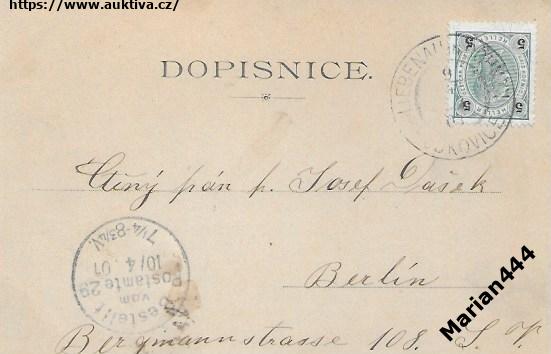 https://www.auktiva.cz/
DOPISNICE.
LIEBENAU
9
5 5
5 5
HELLER
Ctěný pán p. Josef Dašek
Berlín
Bergmannstrasse 108. S. W.
Bestellt
vom
Postamte 29
10/4 01
7¼-8¾V.
Marian444